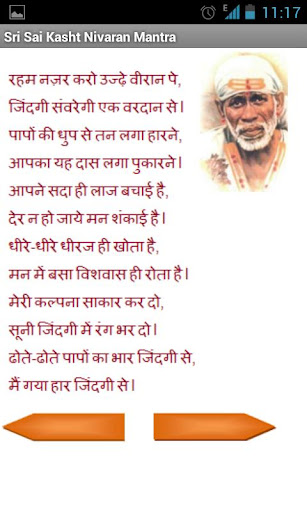 11:17
Sri Sai Kasht Nivaran Mantra
रहम नज़र करो उज्ढ़े वीरान पे,
जिंदगी संवरेगी एक वरदान से।
पापों की धुप से तन लगा हारने,
आपका यह दास लगा पुकारने।
आपने सदा ही लाज बचाई है,
देर न हो जाये मन शंकाई है।
धीरे-धीरे धीरज ही खोता है,
मन में बसा विशवास ही रोता है।
मेरी कल्पना साकार कर दो,
सूनी जिंदगी में रंग भर दो।
ढोते-ढोते पापों का भार जिंदगी से,
मैं गया हार जिंदगी से।